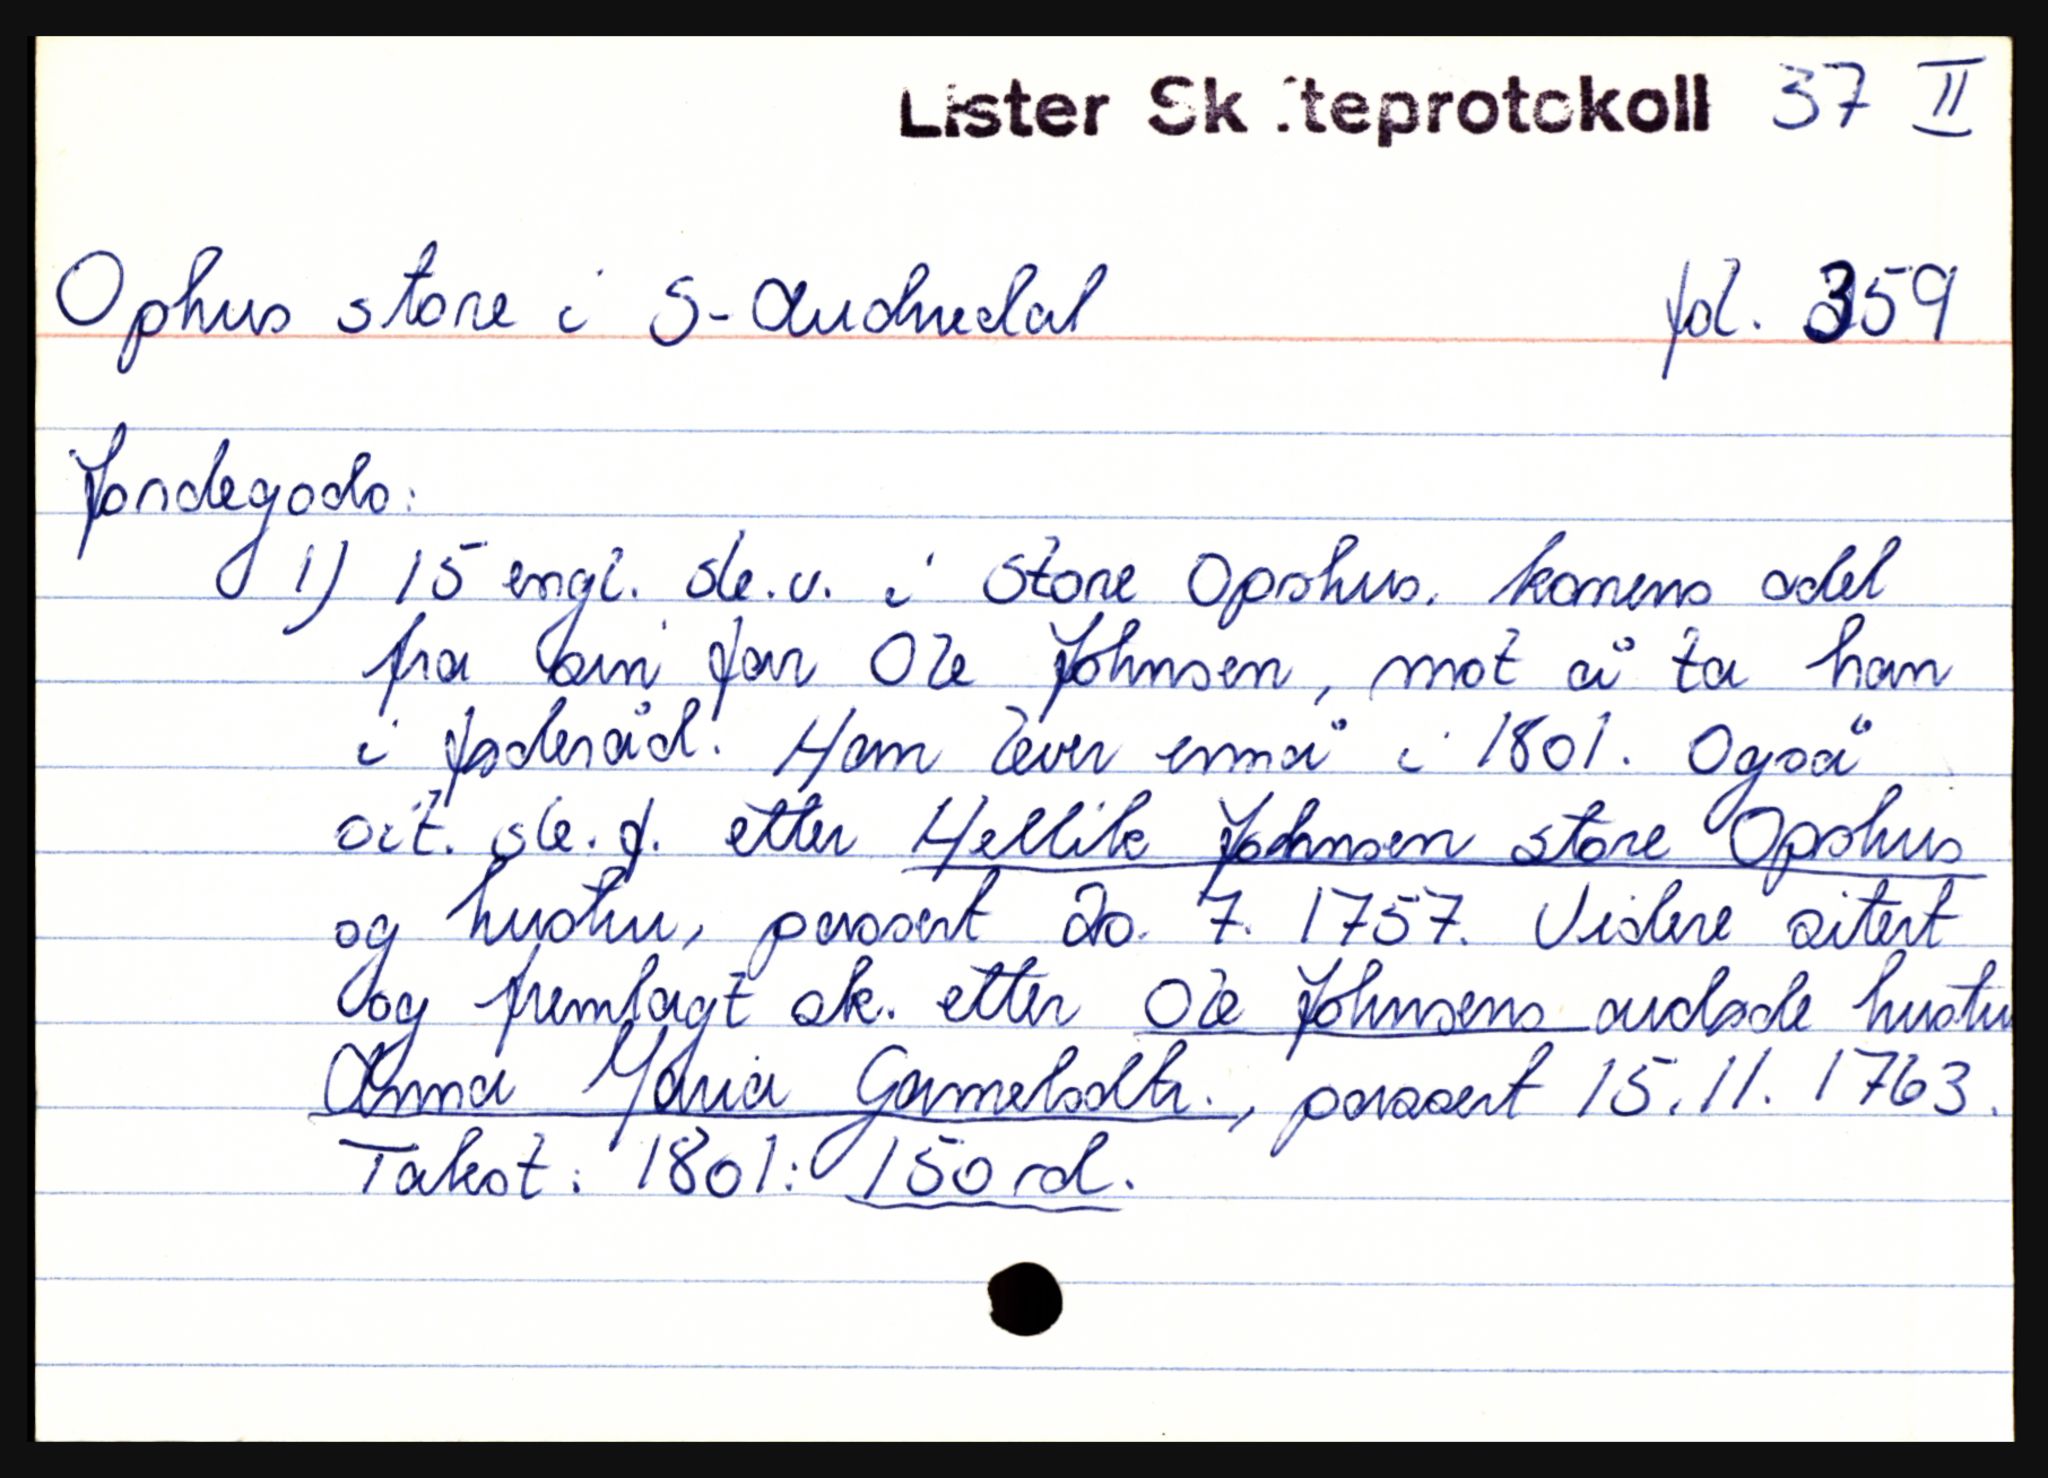 Lister Skifteprotokoll 37 II
Ophus store i S-Audnedal fol. 359
Jordegods:
1) 15 engl. sk.v. i Store Opshus. konens odel
fra sin far Ole Johnsen, mot å ta han
i føderåd. Han lever ennå i 1801. Også
cit. sk.f. etter Hellik Johnsen store Opshus
og hustru, passert 20. 7. 1757. Videre sitert
og fremlagt sk. etter Ole Johnsens avdøde hustru
Anna Maria Gamelsdtr., passert 15.11.1763.
Takst: 1801: 150 rd.